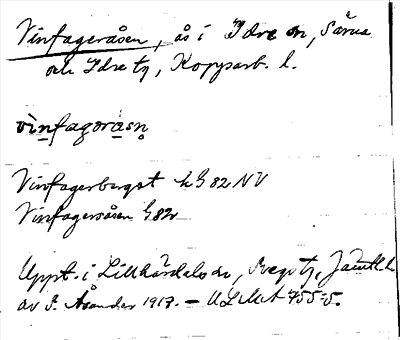 Vinfageråsen, ås i Idre sn, Särna
och Idre tg, Kopparb. l.
vinfagoråsn
Vinfagerberget kG 82 NV
Vinfageråsen G82
Uppt. i Lillhärdals sn, Svegs tg, Jämtl. l.
av P. Åsander 1917. – ULMA 755:5.